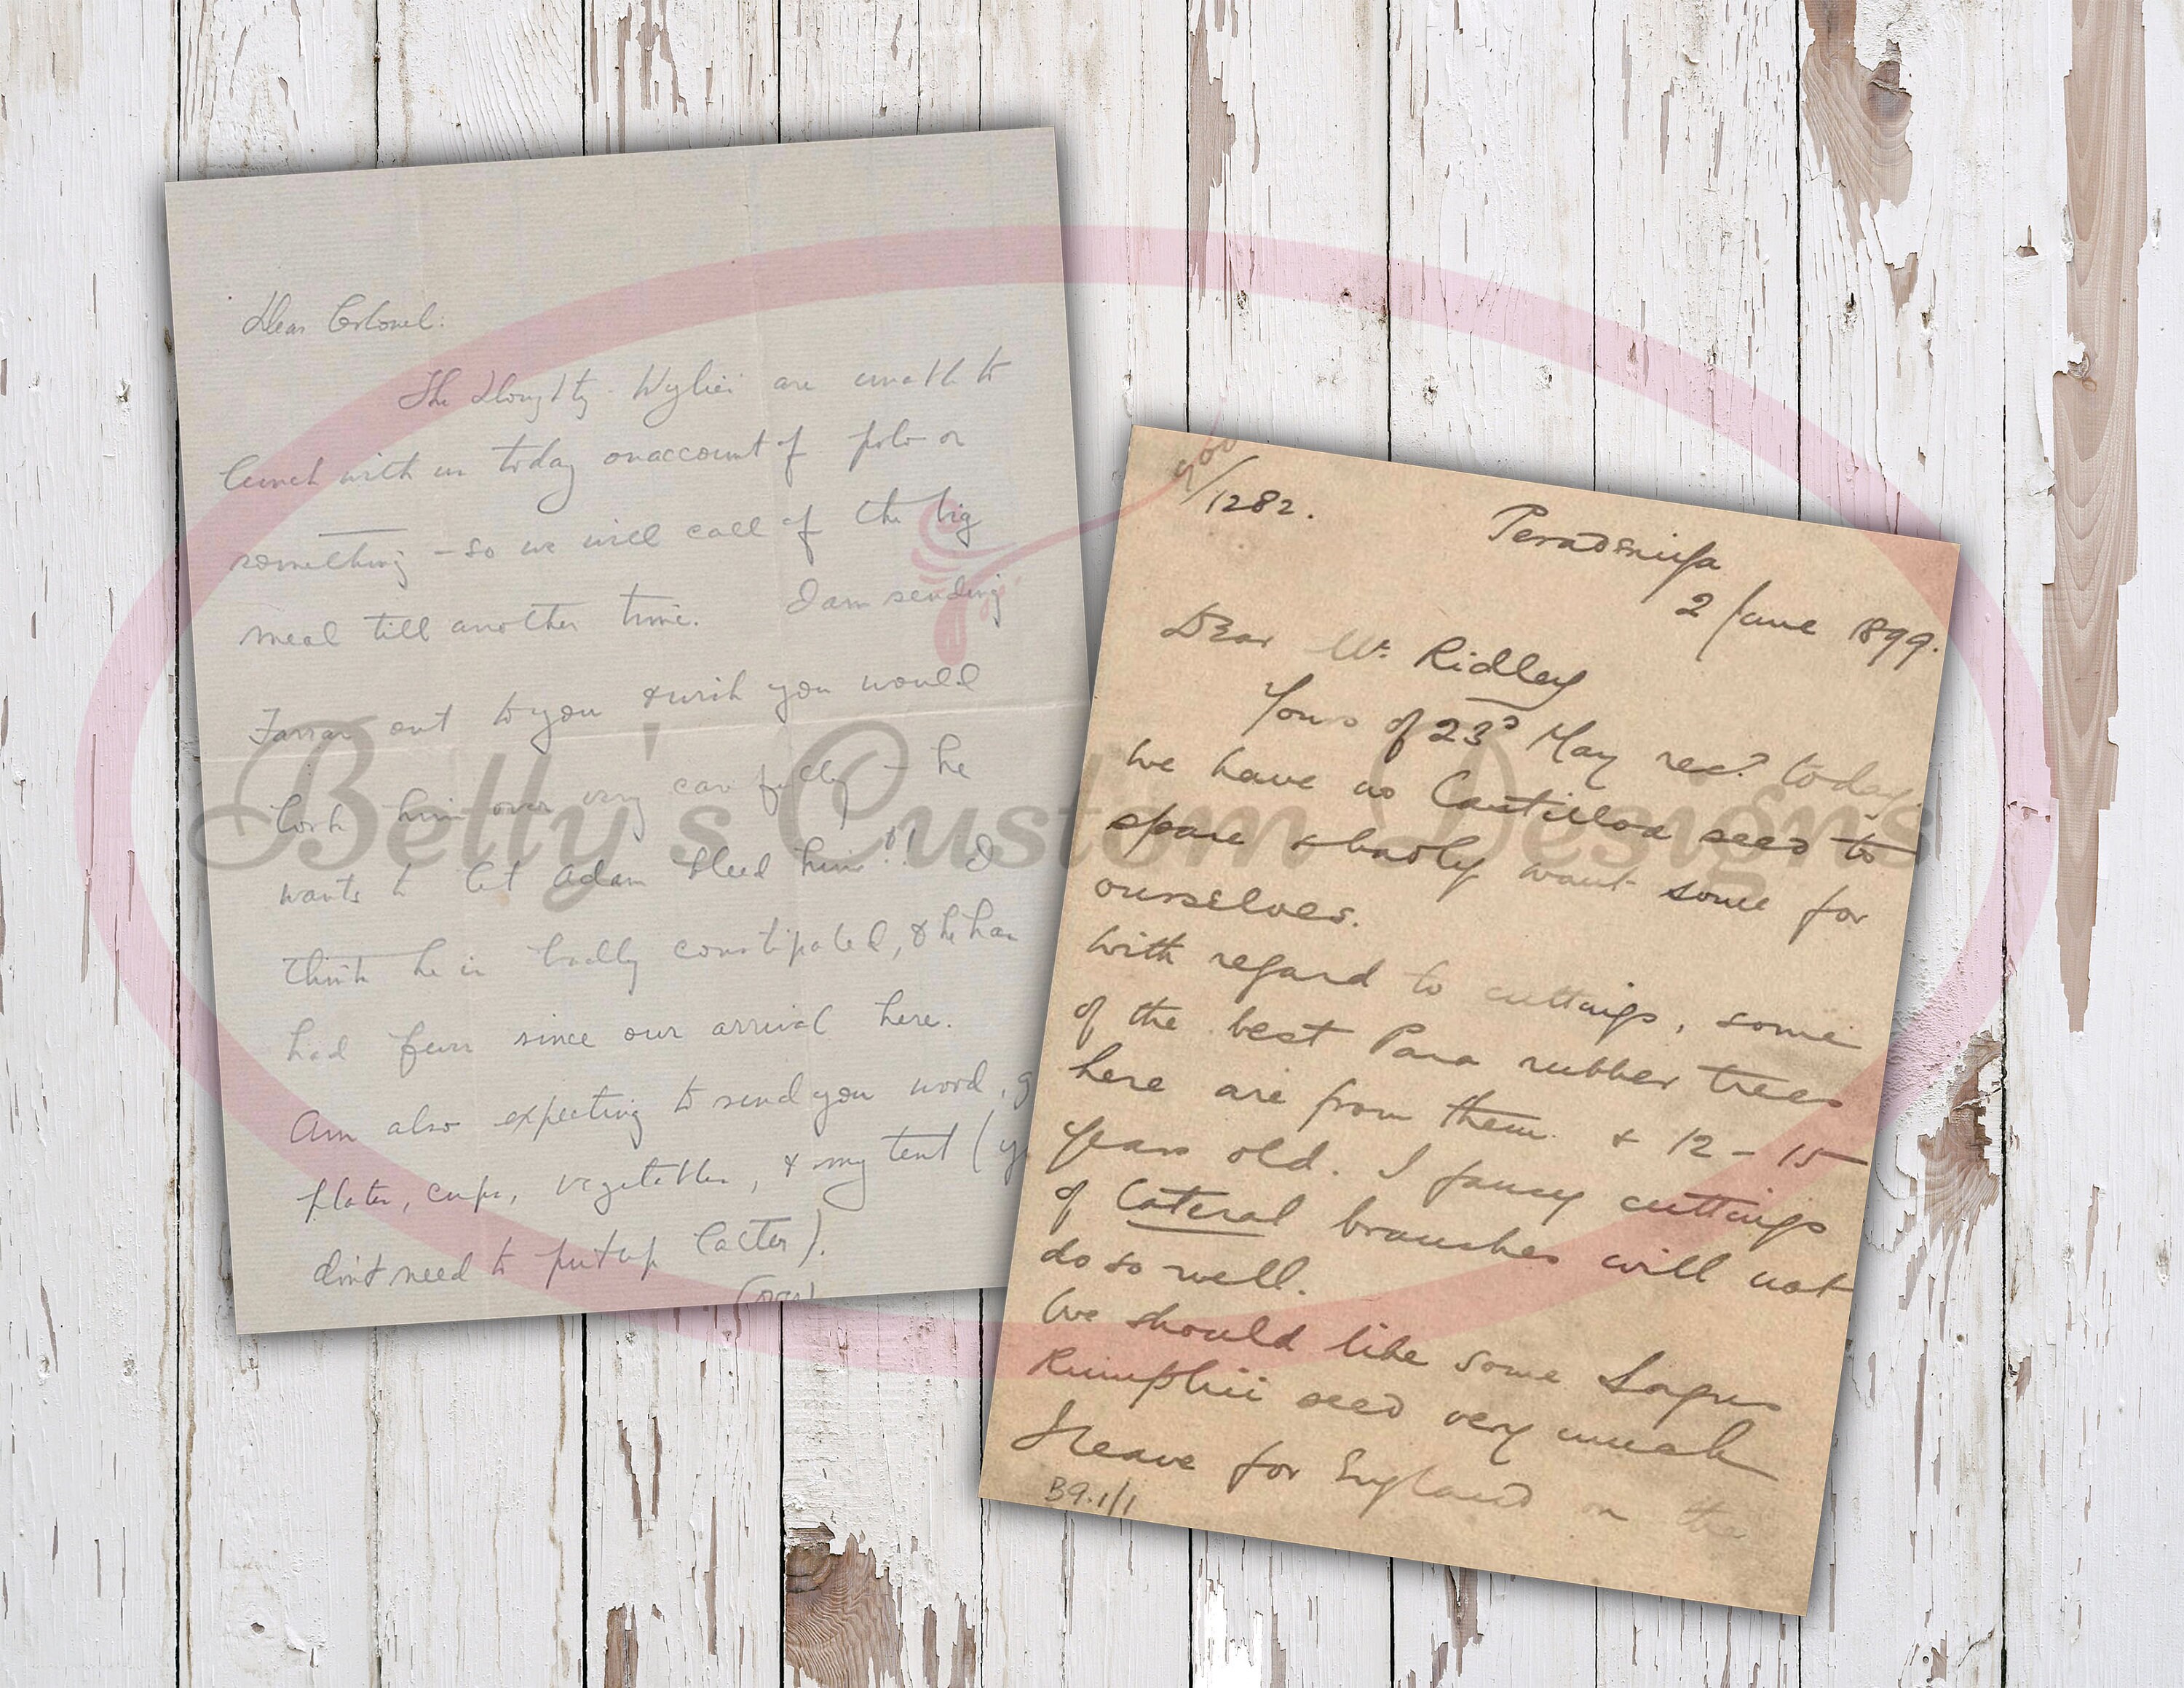 Dear Colonel:
The Doughty-Wylies are unable to
lunch with us today on account of polo or
something - so we will call of the big
meal till another time. I am sending
Farrar out to you & wish you would
look him over very carefully - he
wants to let Adam bleed him!! I
think he is badly constipated, & he has
had fever since our arrival here.
Am also expecting to send you word,
plates, cups, vegetables, & my tent (
don't need to put up latter).
(over)
/1282.
Peradeniya
2 June 1899.
Dear Mr. Ridley
Yours of 23d May recd today.
We have no Castilloa seed to
spare & badly want some for
ourselves.
With regard to cuttings, some
of the best Para rubber trees
here are from them & 12-15
years old. I fancy cuttings
of lateral branches will not
do so well.
We should like some Sagus
Rumphii seed very much
I leave for England on the
B9.1/1
Betty's Custom Designs